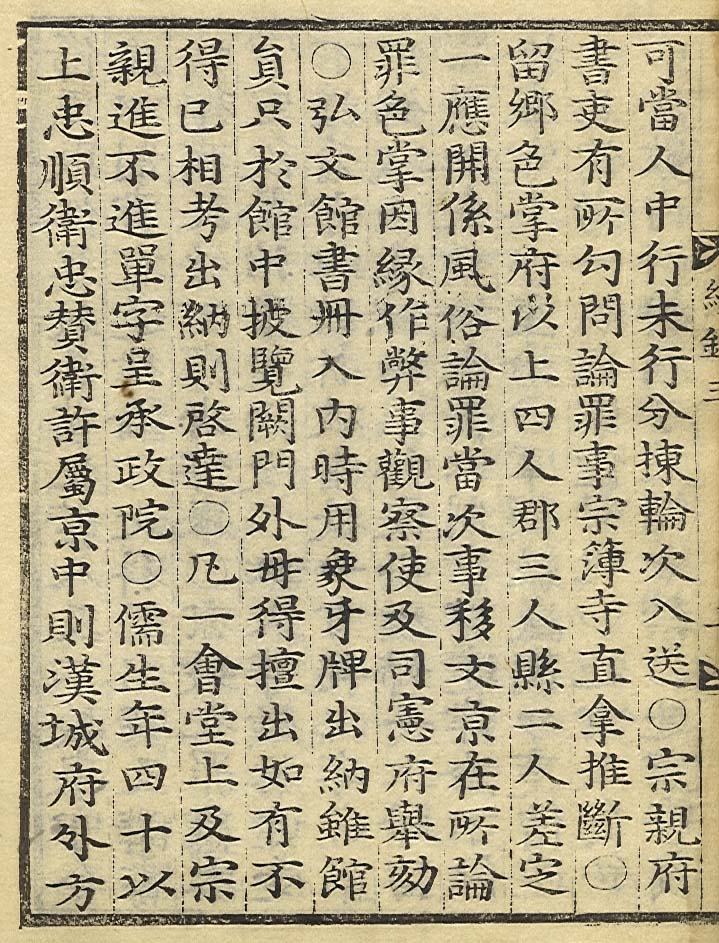 可當人中行未行分揀輪次入送〇宗親府
書吏有所勾問論罪事宗簿寺直拿推斷〇
留鄉色掌府以上四人郡三人縣二人差定
一應開係風俗論罪當次事移文京在所論
罪色掌因緣作弊事觀察使及司憲府舉劾
〇弘文館書冊入內時用象牙牌出納雖館
員只於館中披覽闕門外毋得擅出如有不
得已相考出納則啓達〇凡一會堂上及宗
親進不進單字呈承政院〇儒生年四十以
上忠順衛忠贊衛許屬京中則漢城府外方